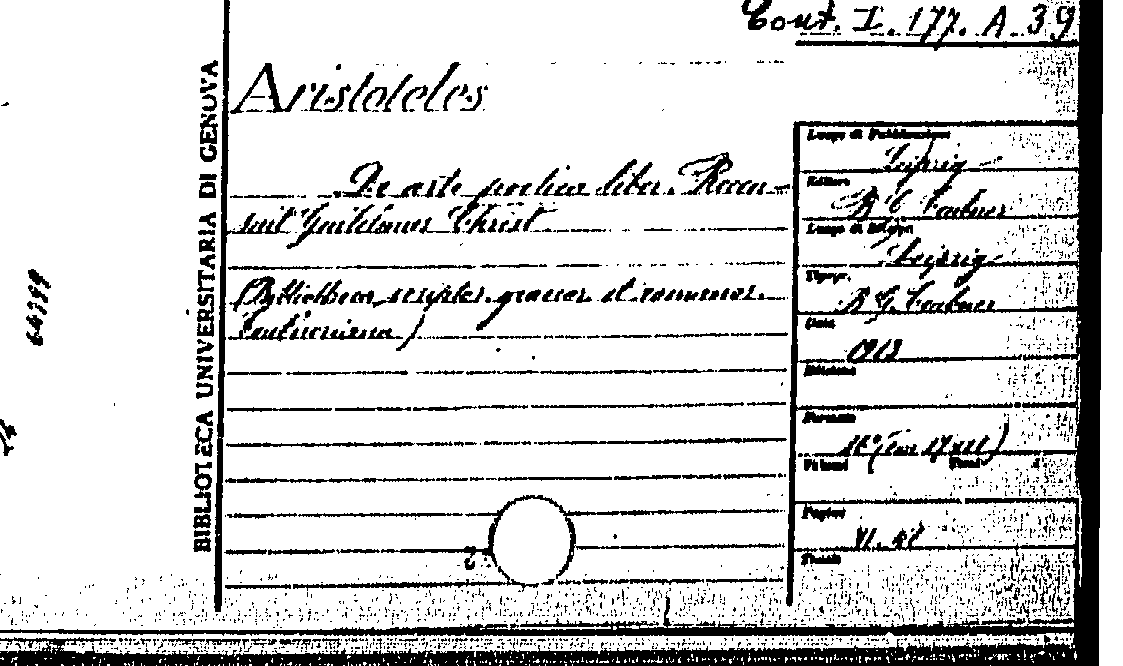 Cont. I. 177. A. 39
BIBLIOTECA UNIVERSITARIA DI GENOVA
Aristoteles
De arte poetica liber. Recen-
suit Guilelmus Christ
(Bibliotheca script. graecor et romanor.
Teubneriana)
Luogo di Pubblicazione
Leipzig
Editore
B G Teubner
Luogo di Stampa
Leipzig
Tipogr.
B. G. Teubner
Data
1913
Edizione
Formato
16º (cm 17x11)
Volumi Tomi
Pagine
VI. 48